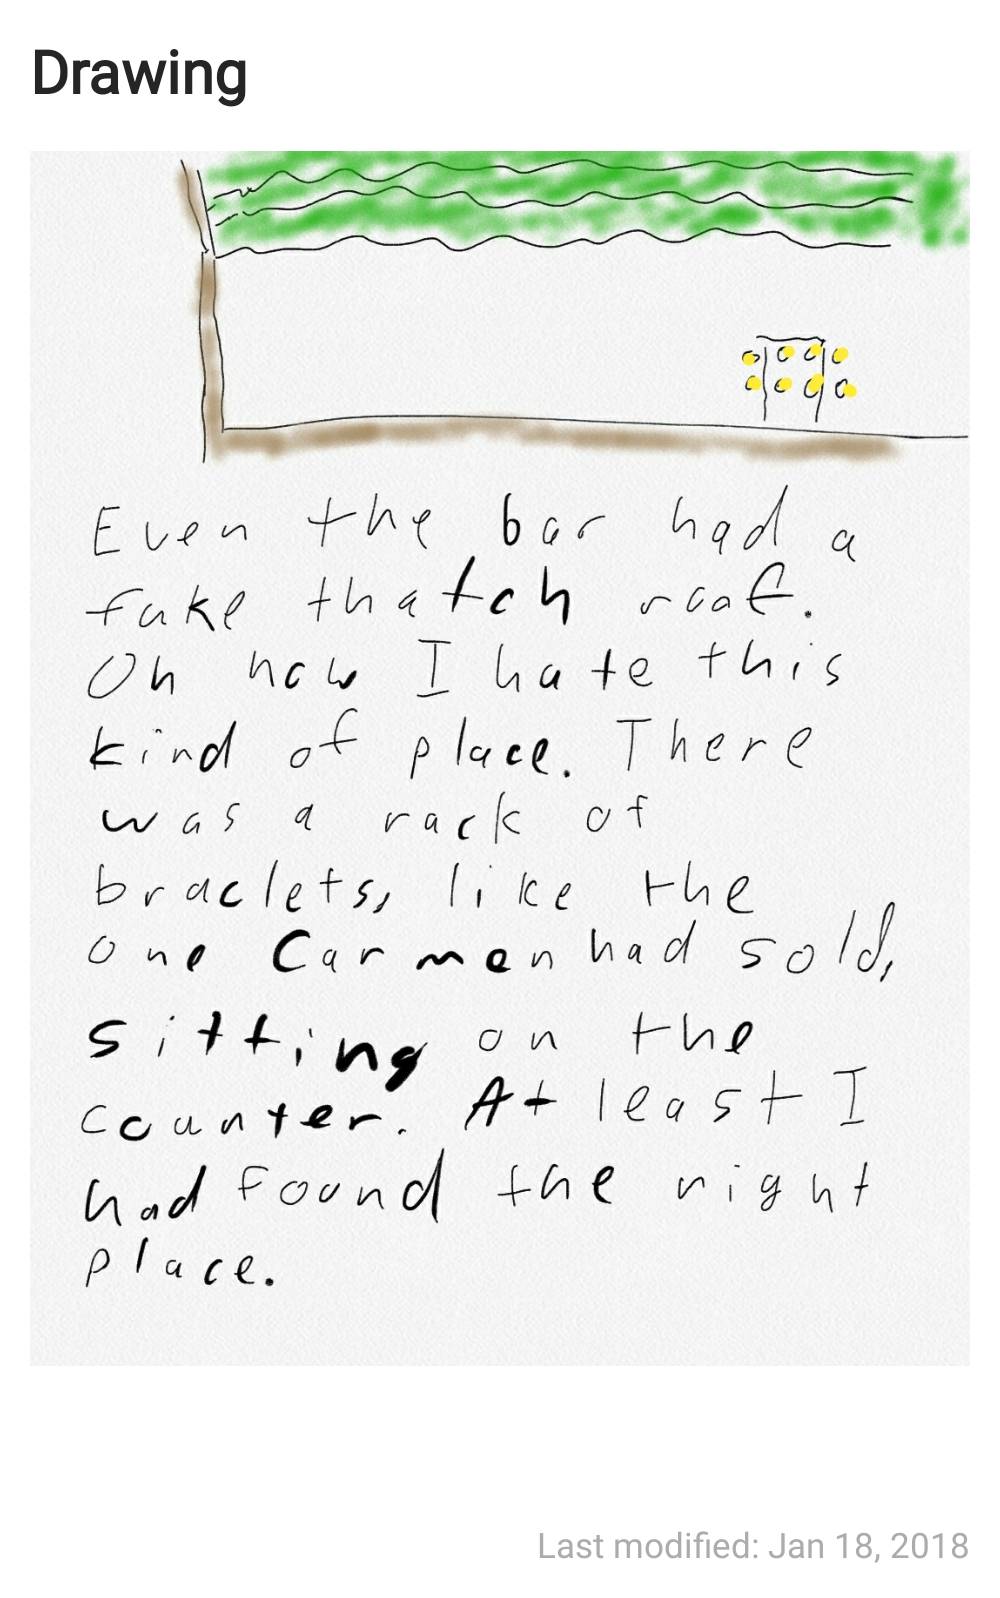 Drawing
Even the bar had a
fake thatch roof.
Oh how I hate this
kind of place. There
was a rack of
braclets, like the
one Carmen had sold,
sitting on the
counter. At least I
had found the right
place.
Last modified: Jan 18, 2018